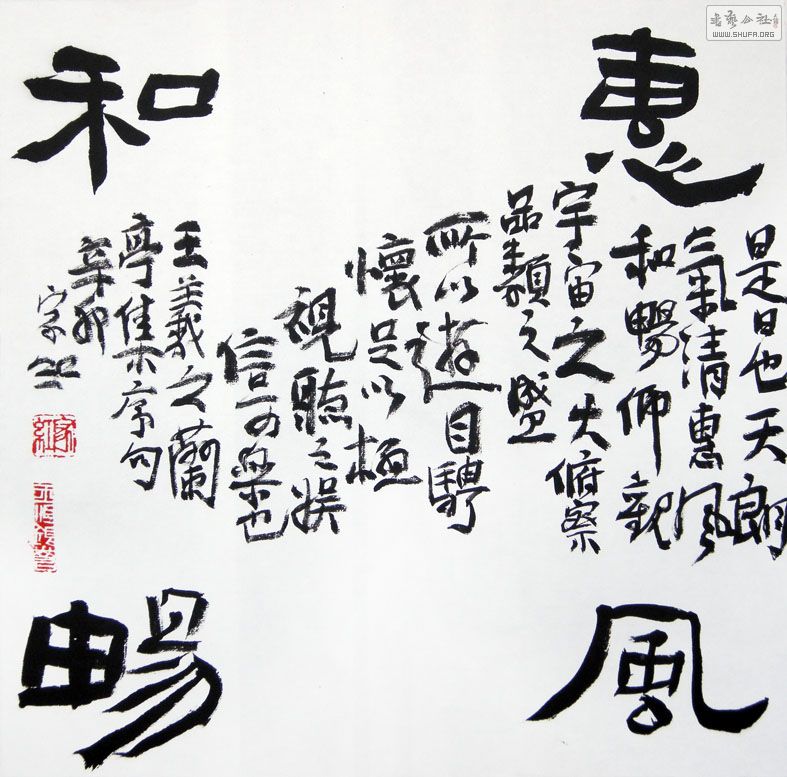 惠風
和暢
是日也天朗
氣清惠風
和暢仰觀
宇宙之大俯察
品類之盛
所以遊目騁
懷足以極
視聽之娛
信可樂也
王羲之蘭
亭集序句
辛卯
家紅
家紅
書藝公社
WWW.SHUFA.ORG